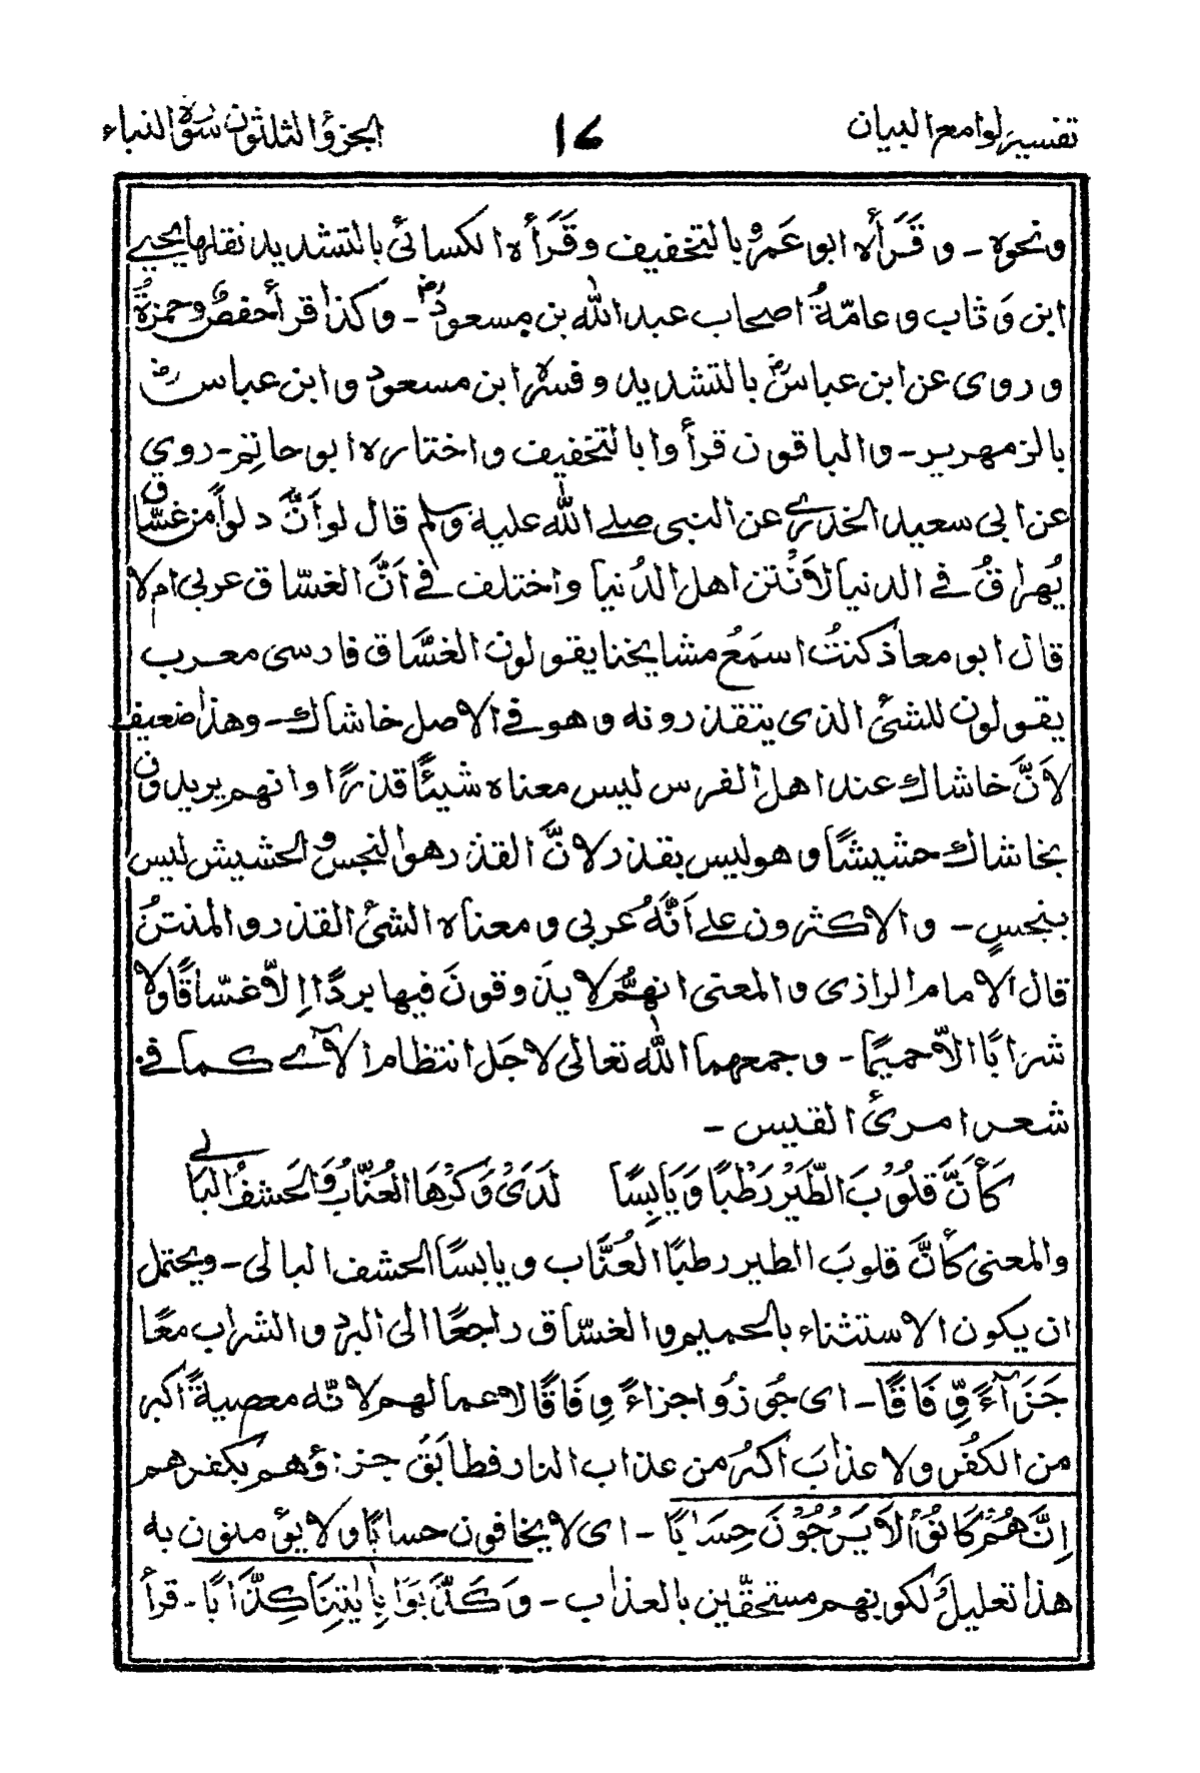 تفسير لوامع البيان ١٤ الجزؤ الثلثون سورة النباء
ونحوه ـ و قَرَأَه ابو عَمرٍو بالتخفيف وقَرَأه الكسائى بالتشديد نقلها يحيے
ابن وَثاب وعامّةُ اصحاب عبد الله بن مسعودؓ ـ وكذا قرأ حفصٌ وحمزةُ
و روى عن ابن عباسؓ بالتشديد وفسره ابن مسعود وابن عباسؓ
بالزمهرير ـ والباقون قرأوا بالتخفيف واختاره ابو حاتم ـ روي
عن ابى سعيد الخدرے عن النبى صلے الله عليه وسلم قال لو أنَّ دلوًا من غسّاق
يُهراقُ فے الدنيا لأنْتن اهل الدُنيا واختلف فے اَنَّ الغسّاق عربى ام لا
قال ابو معاذ كنتُ اسمَعُ مشايخنا يقولون الغسَّاق فارسى معرب
يقولون للشئ الذى يتقذرونه وهو فے الاصل خاشاك ـ وهذا ضعيف
لاَنَّ خاشاك عند اهل الفرس ليس معناه شيئًا قذرًا وانهم يريدون
بخاشاك حشيشًا وهو ليس بقذر لانَّ القذر هو النجس والحشيش ليس
بنجسٍ ـ والاكثرون علے اَنَّهُ عربى ومعناه الشئ القذر والمنتنُ
قال الامام الرازى والمعنى انهم لا يذوقونَ فيها بردًا اِلاّ غسّاقًا ولا
شرابًا الاّ حميمًا ـ وجمعهما الله تعالى لاجَل انتظام الآے كما فے
شعر امرئ القيس ـ
كَأَنَّ قلُوْبَ الطَّيْرِ رَطْبًا وَيَابِسًا لَدَىْ وَكْرِهَا العُنَّابُ وَالحَشفُ البَالے
والمعنى كأنَّ قلوبَ الطير رطبًا العُنَّاب ويابسًا الحشف البالى ـ ويحتمل
ان يكون الاستثناء بالحميم والغسّاق راجعًا الى البرد والشراب معًا
جَزَآءً وِّفَاقًا ـ اى جُوزُوا جزاءً وِفَاقًا لاعمالهم لانّه معصيةً اكبر
من الكفُر ولا عذابَ اكبُر من عذاب النار فطابَقَ جزاؤهم بكفرهم
اِنَّهُمْ كَانُوْا لاَ يَرْجُوْنَ حِسَابًا ـ اى لا يخافون حسابًا ولا يؤمنون به
هذا تعليلٌ لكونهم مستحقّين بالعذاب ـ وَكَذَّبُوْا بِاٰيٰتِنَا كِذَّابًا ـ قرأ